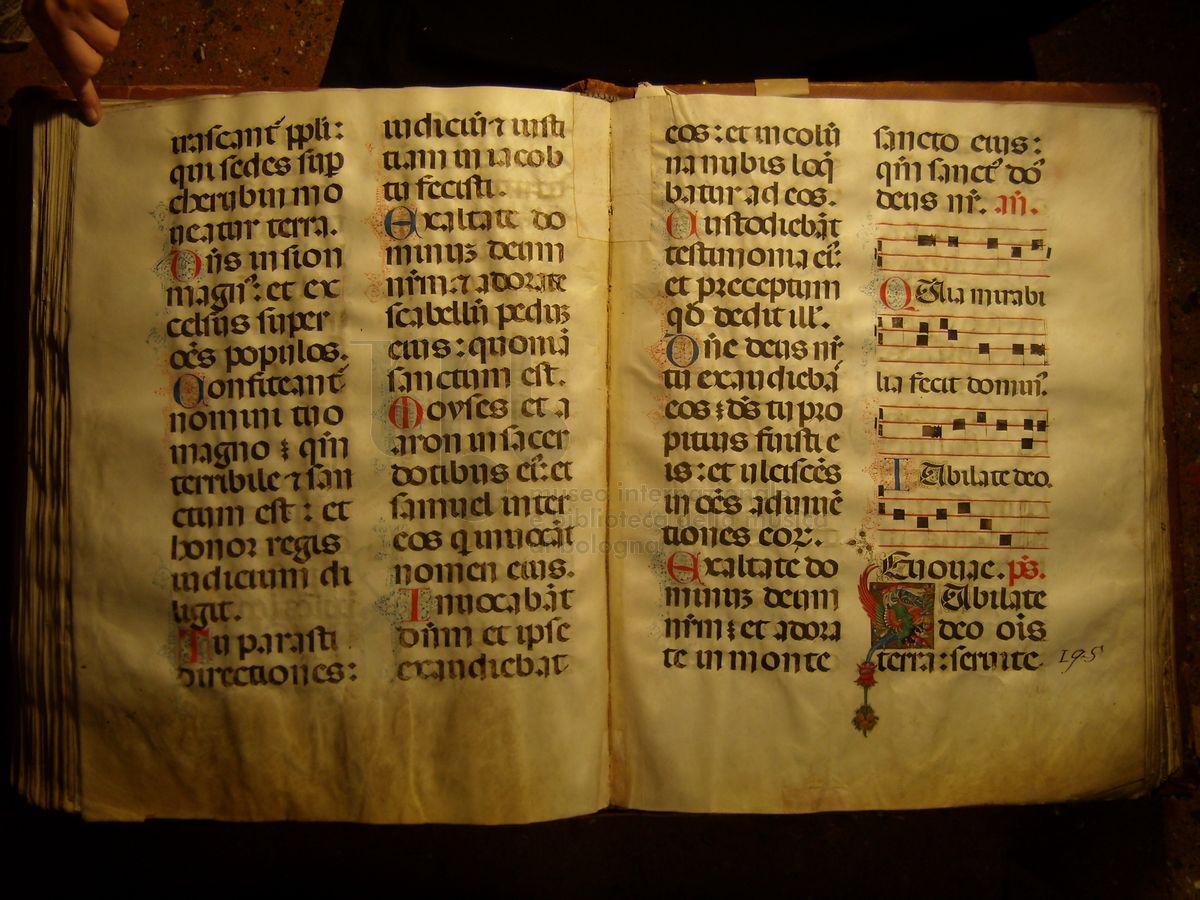 irascant̄ ppl̄i:
qui sedes sup̄
cherubin mo
ueatur terra.
Dn̄s in sion
magn᷒: et ex
celsus super
oēs populos.
Confiteant̄
nomini tuo
magno : qm̄
terribile ⁊ san
ctum est : et
honor regis
iudicium di
ligit.
Tu parasti
directiones:
iudiciū ⁊ iusti
tiam in iacob
tu fecisti.
Exaltate do
minuꝫ deum
nr̄m ⁊ adorate
scabellū peduꝫ
eius : quoniā
sanctum est.
Moyses et a
aron in sacer
dotibus ei᷒: et
samuel inter
eos q inuocāt
nomen eius.
Inuocabāt
dn̄m et ipse
exaudiebat
eos : et in colū
na nubis loq̄
batur ad eos.
Custodiebāt
testimonia ei᷒:
et preceptum
qd̄ dedit ill̄.
Dn̄e deus nr̄
tu exaudiebā
eos : ds̄ tu pro
pitius fuisti e
is : et ulciscēs
in oēs adinuē
tiones eoꝝ.
Exaltate do
minuꝫ deum
nr̄m : et adora
te in monte
sancto eius :
qm̄ sanct᷒ do᷒
deus nr̄. an̄.
QUia mirabi
lia fecit domin᷒.
IUbilate deo.
Euouae. ps̄.
IUbilate
deo oīs
terra : seruite
195
museo internazionale
e biblioteca della musica
di bologna